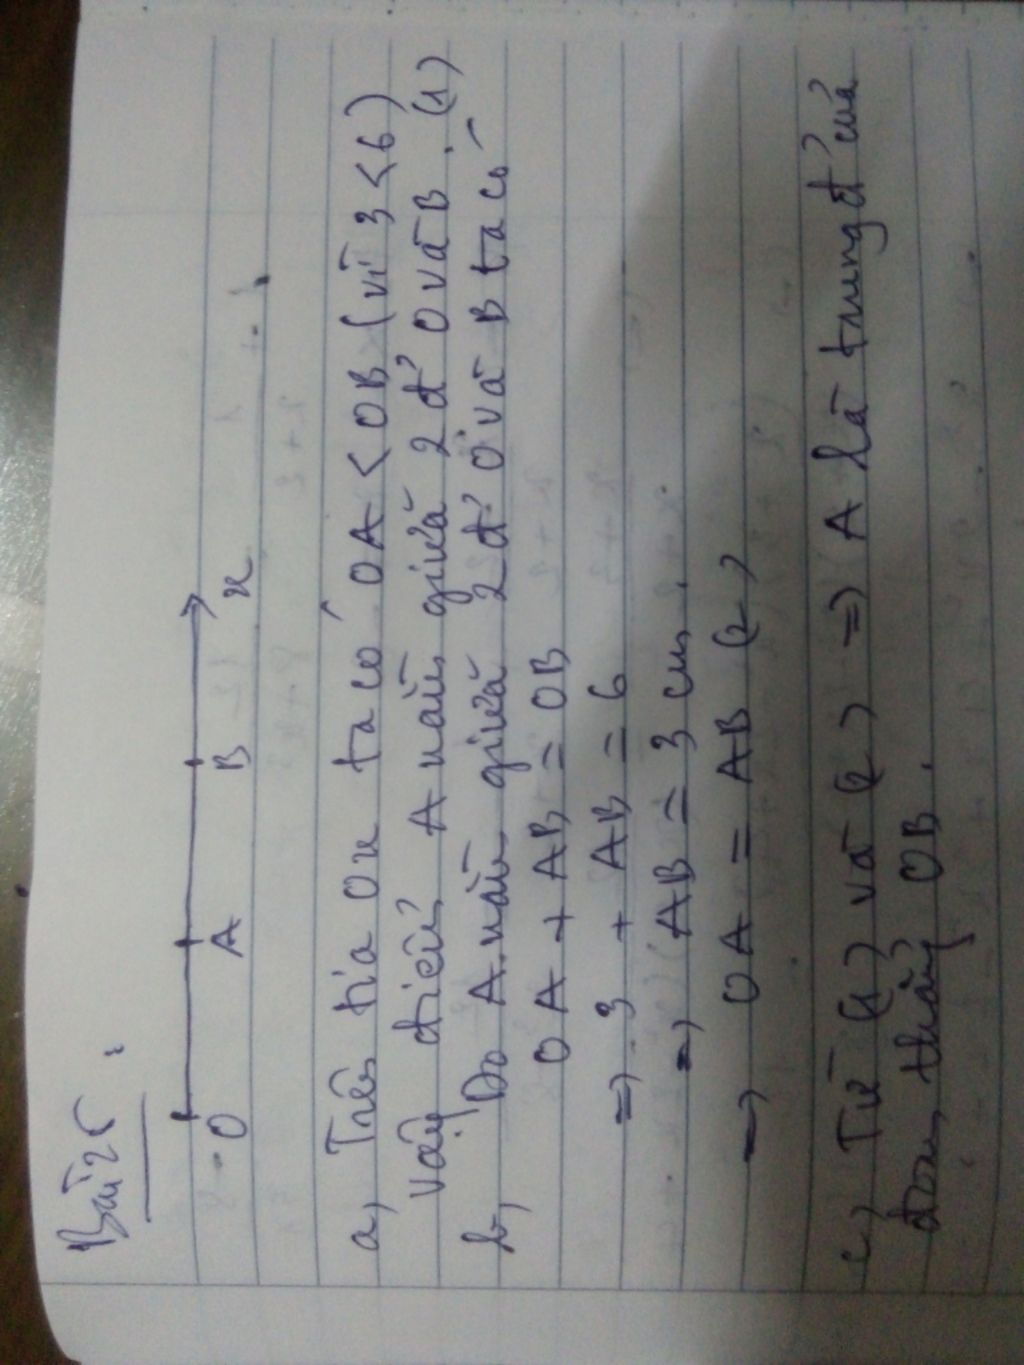 Bài 25 :
O A B x
a, Trên tia Ox ta có OA < OB (vì 3 < 6)
Vậy điểm A nằm giữa 2 đ' O và B. (1)
b, Do A nằm giữa 2 đ' O và B ta có
OA + AB = OB
=> 3 + AB = 6
=> AB = 3 cm.
=> OA = AB (2)
c, Từ (1) và (2) => A là trung đ' của
đoạn thẳng OB.